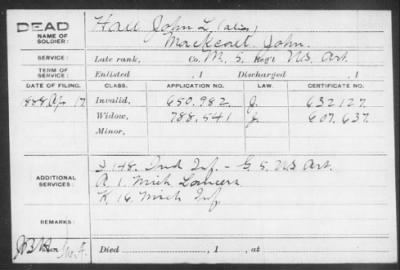 DEAD
NAME OF SOLDIER:
Hall John L. (alias)
Mackeart, John.
SERVICE:
Late rank, Co. M. 5 Reg't U.S. Art.
TERM OF SERVICE:
Enlisted , 1 Discharged , 1
DATE OF FILING. CLASS. APPLICATION NO. LAW. CERTIFICATE NO.
1888 Apr 17 Invalid, 650,982 J. 632127.
Widow, 788,541 J. 607,637.
Minor,
ADDITIONAL SERVICES:
I. 148. Ind Inf. - G. 5. U.S Art.
A 1. Mich Lancers
K 16 Mich Inf.
REMARKS:
Died , 1 , at